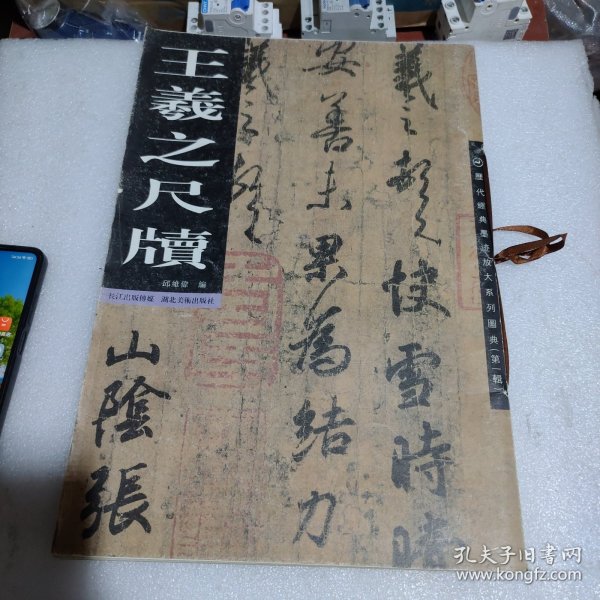 王羲之尺牘
邱維偉 編
长江出版傳媒 湖北美術出版社
歷代經典墨迹放大系列圖典(第一輯)
羲之頓首快雪時晴
安善未果為結力
羲之頓首
山陰張
孔夫子旧書网
www.kongfz.com